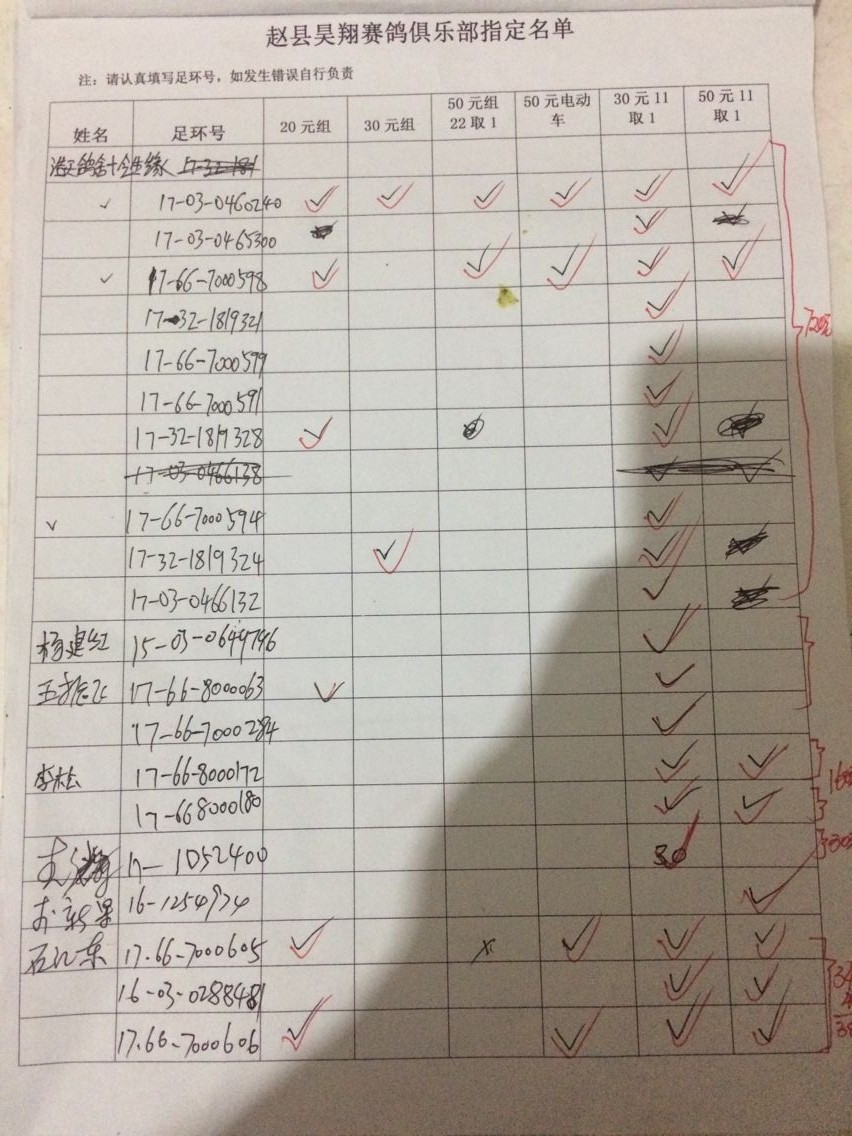 赵县昊翔赛鸽俱乐部指定名单
注：请认真填写足环号，如发生错误自行负责
姓名 足环号 20元组 30元组 50元组22取1 50元电动车 30元11取1 50元11取1
17-03-0460240 ✓ ✓ ✓ ✓ ✓ ✓
17-03-0465300 ✓
17-66-7000598 ✓ ✓ ✓ ✓ ✓
17-32-1819321 ✓
17-66-7000599 ✓
17-66-7000591 ✓
17-32-1819328 ✓ ✓
17-03-0466138
17-66-7000594 ✓
17-32-1819324 ✓ ✓
17-03-0466132 ✓
杨建红 15-03-0644796 ✓
17-66-8000063 ✓ ✓
17-66-7000284 ✓
李松 17-66-8000172 ✓ ✓
17-668000180 ✓ ✓
17- 1052400 30
16-1254974 ✓
石江东 17.66-7000605 ✓ × ✓ ✓ ✓
16-03-0288481 ✓ ✓
17.66-7000606 ✓ ✓ ✓ ✓